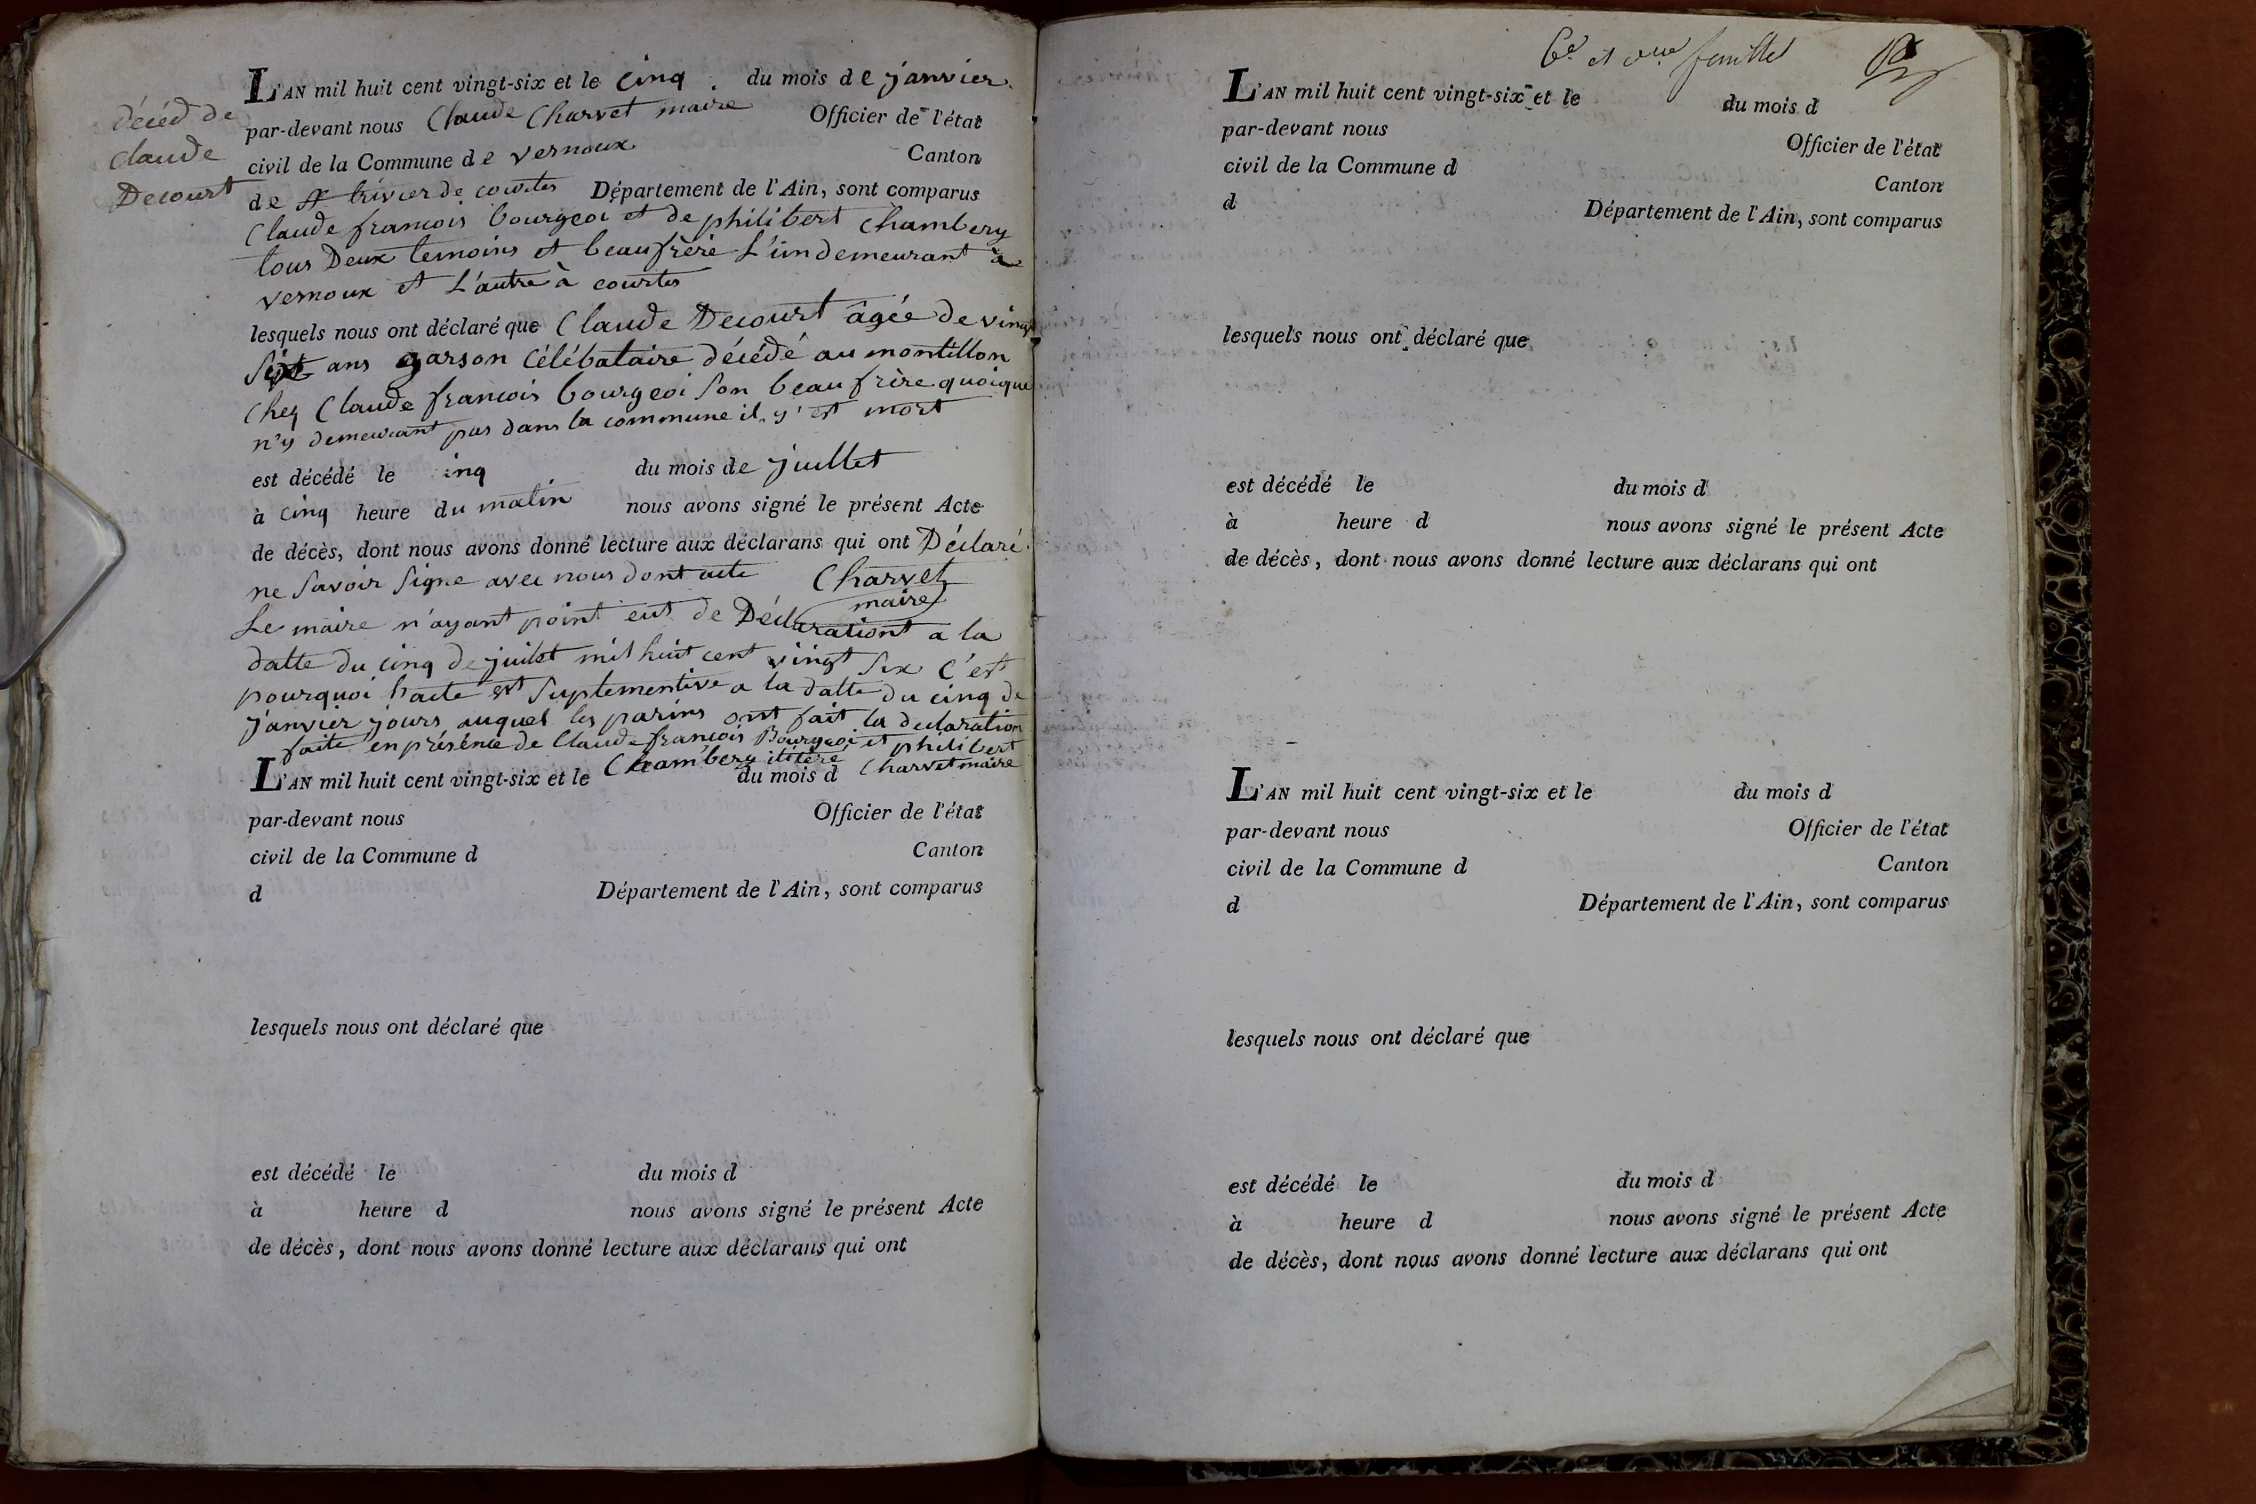 décéd de
Claude
Decourt
L'AN mil huit cent vingt-six et le cinq du mois de janvier
par-devant nous Claude Charvet maire Officier de l'état
civil de la Commune de vernoux Canton
de st trivier de courtes Département de l'Ain, sont comparus
Claude francois bourgeoi et de philibert Chambery
tous Deux temoins et beaufrère L'un demeurant à
vernoux et L'autre à courtes
lesquels nous ont déclaré que Claude Decourt âgée de vingt
ans garson Célébataire décédé au montillon
Chez Claude francois bourgeoi son beau frère quoique
n'y demeurant pas dans la commune il y'est mort
est décédé le inq du mois de juillet
à cinq heure du matin nous avons signé le présent Acte
de décès, dont nous avons donné lecture aux déclarans qui ont Déclaré
ne savoir signe avec nous dont acte Charvet
maire
Le maire n'ayant point eut de Déclarationt a la
datte du cinq de juilet mil huit cent vingt six c'est
pourquoi l'acte est suplementive a la datte du cinq de
janvier jours auquel les parins ont fait la declaration
faite en présence de Claude francois Bourgeoi et philibert
Chambery Charvet maire
L'AN mil huit cent vingt-six et le du mois d
par-devant nous Officier de l'état
civil de la Commune d Canton
d Département de l'Ain, sont comparus
lesquels nous ont déclaré que
est décédé le du mois d
à heure d nous avons signé le présent Acte
de décès, dont nous avons donné lecture aux déclarans qui ont
6e et feuillet
L'AN mil huit cent vingt-six et le du mois d
par-devant nous Officier de l'état
civil de la Commune d Canton
d Département de l'Ain, sont comparus
lesquels nous ont déclaré que
est décédé le du mois d
à heure d nous avons signé le présent Acte
de décès, dont nous avons donné lecture aux déclarans qui ont
L'AN mil huit cent vingt-six et le du mois d
par-devant nous Officier de l'état
civil de la Commune d Canton
d Département de l'Ain, sont comparus
lesquels nous ont déclaré que
est décédé le du mois d
à heure d nous avons signé le présent Acte
de décès, dont nous avons donné lecture aux déclarans qui ont